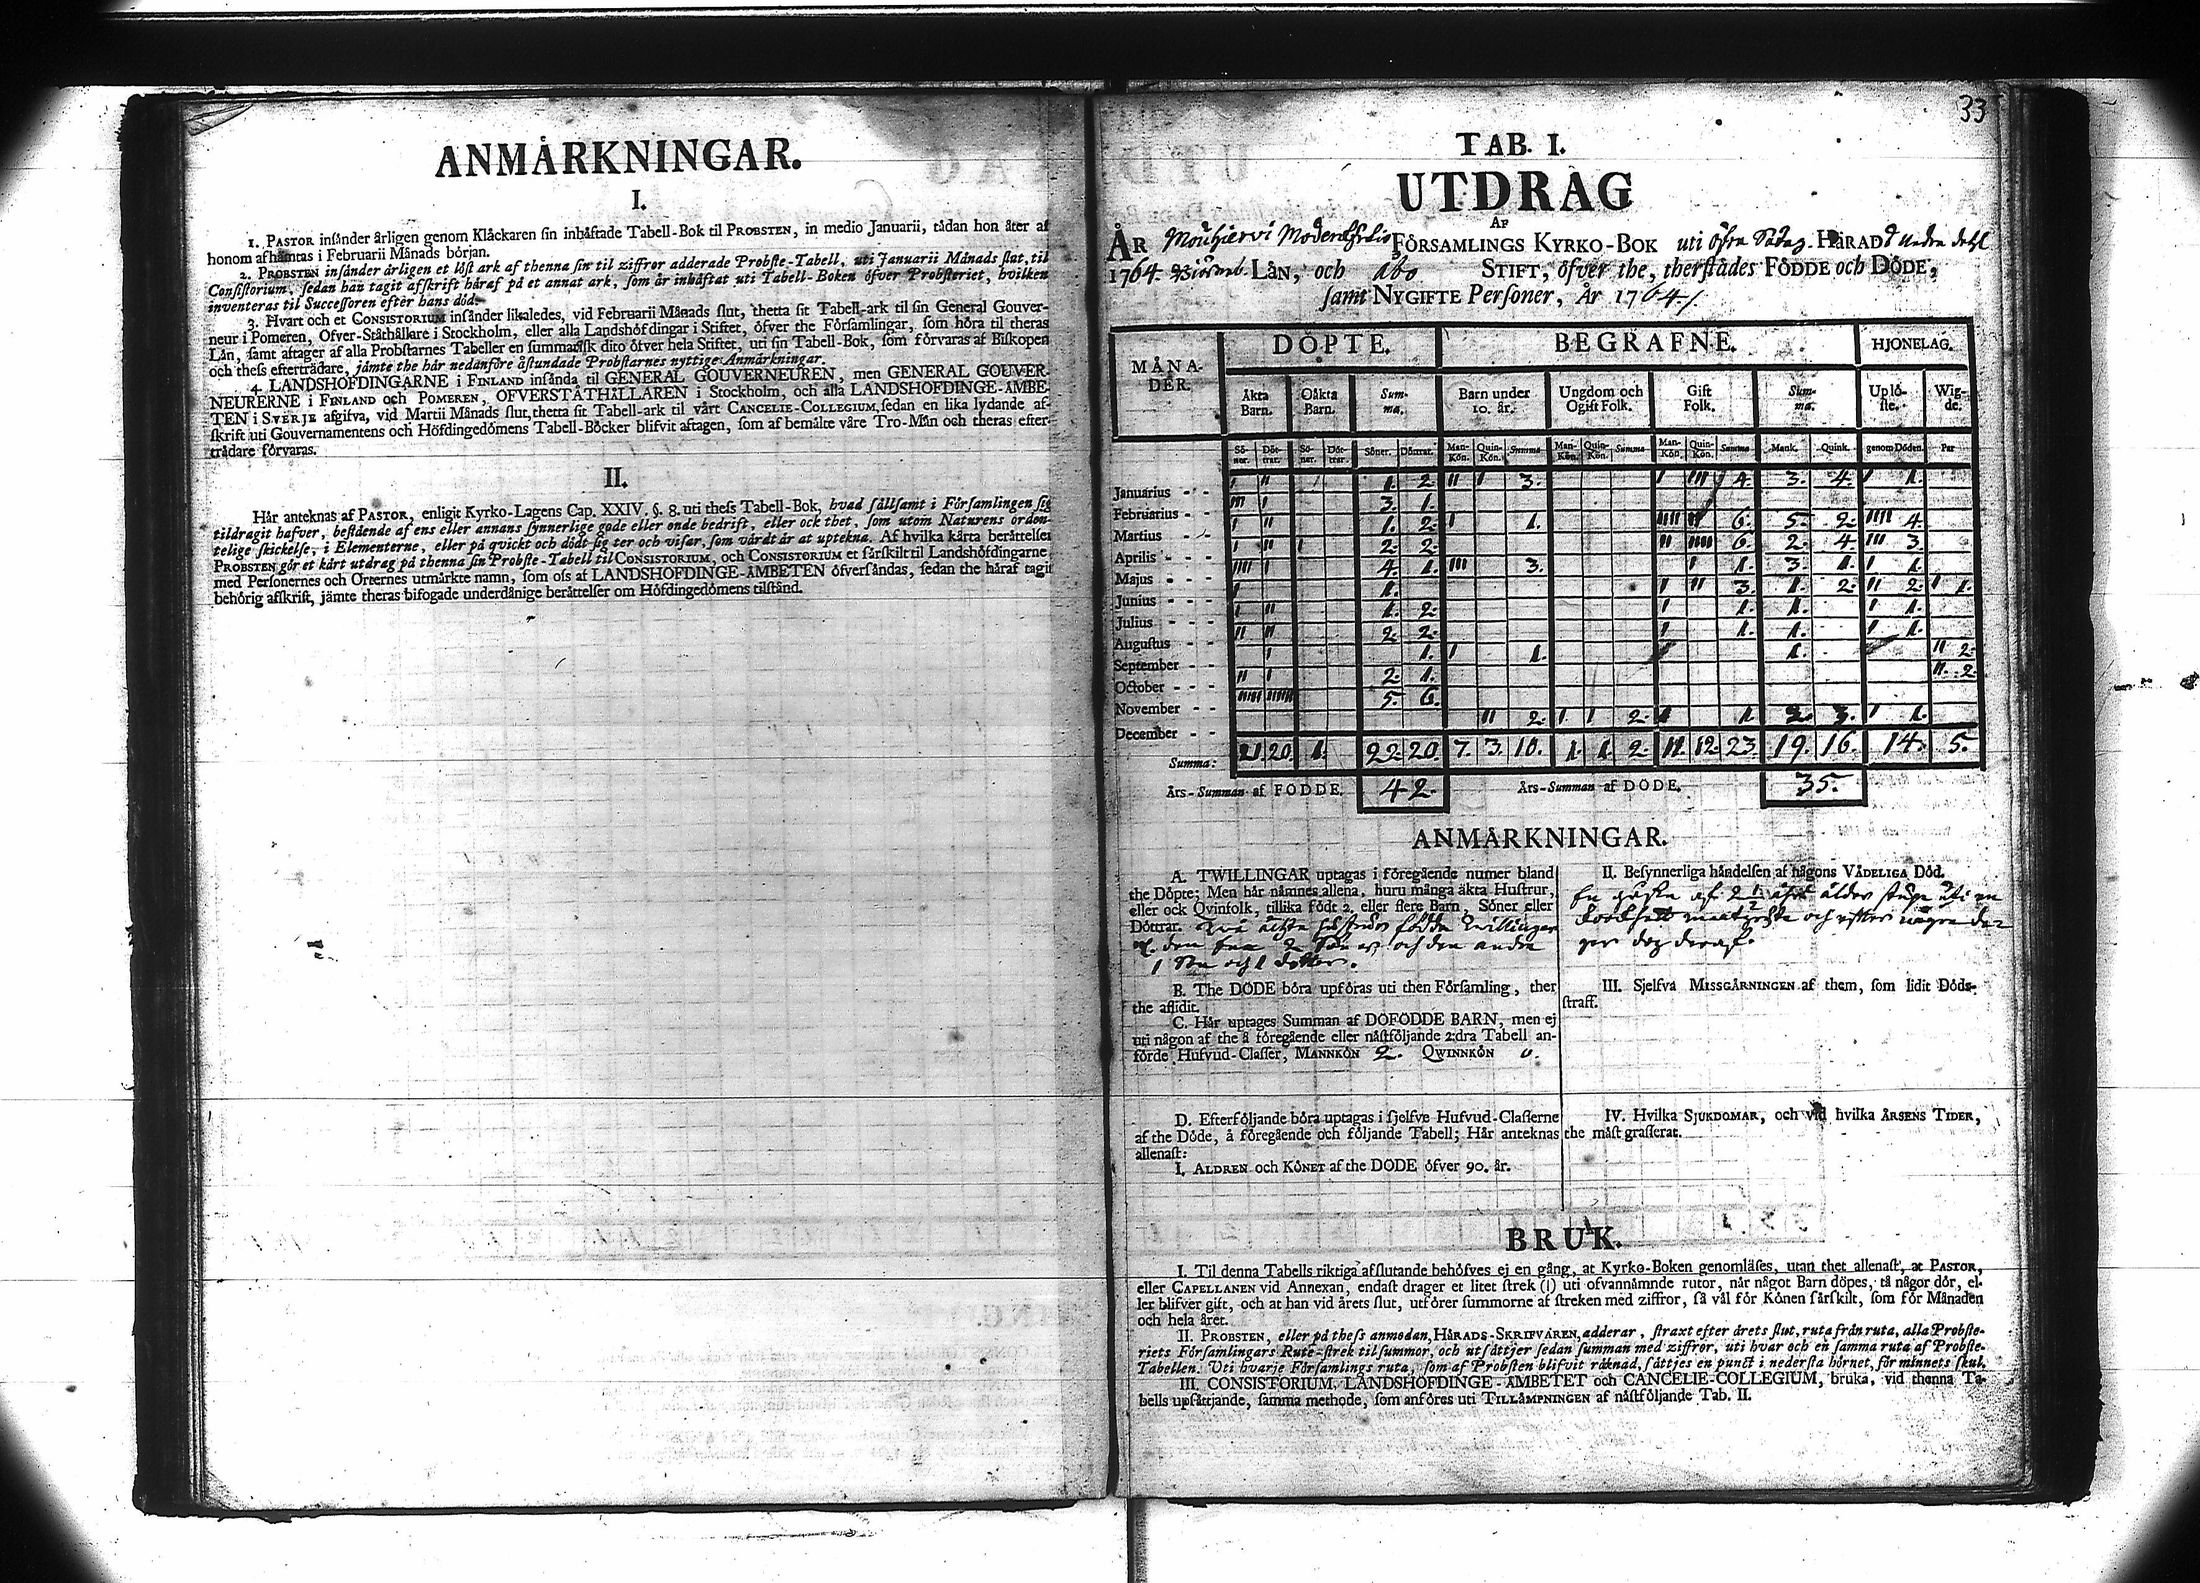 ANMÅRKNINGAR.
I.
1. PASTOR insånder årligen genom Klåckaren sin inhåftade Tabell-Bok til PROBSTEN, in medio Januarii, tådan hon åter af
honom afhåmtas i Februarii Månads början.
2. PROBSTEN insånder årligen et löst ark af thenna sin til ziffror adderade Probste-Tabell, uti Januarii Månads slut, til
Consistorium, sedan han tagit afskrift håraf på et annat ark, som år inhåftat uti Tabell-Boken öfver Probsteriet, hvilken
inventeras til Successoren efter hans död.
3. Hvart och et CONSISTORIUM insånder likaledes, vid Februarii Månads slut, thetta sit Tabell-ark til sin General Gouver-
neur i Pomeren, Öfver-Ståthållare i Stockholm, eller alla Landshöfdingar i Stiftet, öfver the Församlingar, som höra til theras
Lån, samt aftager af alla Probstarnes Tabeller en summarisk dito öfver hela Stiftet, uti sin Tabell-Bok, som förvaras af Biskopen
och thess eftertrådare, jämte the hår nedanföre åstundade Probstarnes nyttige Anmårkningar.
4. LANDSHÖFDINGARNE i FINLAND insånda til GENERAL GOUVERNEUREN, men GENERAL GOUVER-
NEURERNE i FINLAND och POMEREN, ÖFVERSTÅTHÅLLAREN i Stockholm, och alla LANDSHÖFDINGE-ÅMBE-
TEN i SVERJE afgifva, vid Martii Månads slut, thetta sit Tabell-ark til vårt CANCELIE-COLLEGIUM, sedan en lika lydande af-
skrift uti Gouvernamentens och Höfdingedömens Tabell-Böcker blifvit aftagen, som af bemålte våre Tro-Mån och theras efter-
trådare förvaras.
II.
Hår anteknas af PASTOR, enligit Kyrko-Lagens Cap. XXIV. §. 8. uti thess Tabell-Bok, hvad sållsamt i Församlingen sig
tildragit hafver, bestående af ens eller annans synnerlige gode eller onde bedrift, eller ock thet, som utom Naturens orden-
telige skickelse, i Elementerne, eller på qvickt och dödt sig ter och visar, som vårdt år at uptekna. Af hvilka kårta beråttelser
PROBSTEN gör et kårt utdrag på thenna sin Probste-Tabell til CONSISTORIUM, och CONSISTORIUM et sårskilt til Landshöfdingarne
med Personernes och Orternes utmårkte namn, som oss af LANDSHÖFDINGE-ÅMBETEN öfversåndas, sedan the håraf tagit
behörig afskrift, jämte theras bifogade underdånige beråttelser om Höfdingedömens tilstånd.
33
TAB. I.
UTDRAG
AF
ÅR Mouhjervi Moder FÖRSAMLINGS KYRKO-BOK uti öfra HÅRAD
1764. LÅN, och Abo STIFT, öfver the, therstådes FÖDDE och DÖDE,
samt NYGIFTE Personer, År 1764.
MÅNA-DER. DÖPTE. BEGRAFNE. HJONELAG.
Åkta Barn. Oåkta Barn. Sum-ma. Barn under 10. år. Ungdom och Ogift Folk. Gift Folk. Sum-ma. Uplö-ste. Wig-de.
Sö-ner. Döt-trar. Sö-ner. Döt-trar. Söner. Döttrar. Man-Kön. Quin-Kön. Summa Man-Kön. Quin-Kön. Summa Man-Kön. Quin-Kön. Summa Mank. Quink. genom Döden. Par
Januarius - - I II 1. 2. II I 3. I III 4. 3. 4. I 1.
Februarius - - III I 3. 1.
Martius - - I II 1. 2. I 1. IIII II 6. 5. 2. IIII 4.
Aprilis - - I II I 2. 2. II IIII 6. 2. 4. III 3.
Majus - - IIII I 4. 1. III 3. I 1. 3. 1. I 1.
Junius - - I 1. I II 3. 1. 2. II 2. I 1.
Julius - - I II 1. 2. I 1. 1. I 1.
Augustus - - II II 2. 2. I 1. 1. I 1.
September - - I 1. I 1. 1. II 2.
October - - II I 2. 1. II. 2.
November - - IIIII IIIIII 5. 6.
December - - II 2. I I 2. I 1. 2. 3. I 1.
Summa: 21 20. 1. 22 20. 7. 3. 10. 1. 1. 2. 11. 12. 23. 19. 16. 14. 5.
Års-Summan af FÖDDE. 42. Års-Summan af DÖDE. 35.
ANMÅRKNINGAR.
A. TWILLINGAR uptagas i föregående numer bland
the Döpte; Men hår nåmnes allena, huru många åkta Hustrur,
eller ock Qvinfolk, tillika födt 2. eller flere Barn, Söner eller
Döttrar. två åchta hustrur födde twillingar
den ena 2 Söner och den andra
1 Son och 1 dotter.
B. The DÖDE böra upföras uti then Församling, ther
the aflidit.
C. Hår uptages Summan af DÖFÖDDE BARN, men ej
uti någon af the å föregående eller nåstföljande 2:dra Tabell an-
förde Hufvud-Classer, MANNKÖN 2. QWINNKÖN 0.
D. Efterföljande böra uptagas i sjelfve Hufvud-Classerne
af the Döde, å föregående och följande Tabell; Hår anteknas
allenast:
I. ÅLDREN och KÖNET af the DÖDE öfver 90. år.
II. Besynnerliga håndelsen af någons VÅDELIGA Död.
En af 2 1/2 ålder uti en
och efter några da
gar dog deraf.
III. Sjelfva MISSGÅRNINGEN af them, som lidit Döds-
straff.
IV. Hvilka SJUKDOMAR, och vid hvilka ÅRSENS TIDER,
the måst grasserat.
BRUK.
I. Til denna Tabells riktiga afslutande behöfves ej en gång, at Kyrko-Boken genomläses, utan thet allenast, at PASTOR,
eller CAPELLANEN vid Annexan, endast drager et litet strek (|) uti ofvannåmnde rutor, når något Barn döpes, tå någor dör, el-
ler blifver gift, och at han vid årets slut, utförer summorne af streken med ziffror, så vål för Könen sårskilt, som för Månaden
och hela året.
II. PROBSTEN, eller på thess anmodan, HÅRADS-SKRIFVAREN, adderar, straxt efter årets slut, ruta från ruta, alla Probste-
riets Församlingars Rute-strek til summor, och utsåttjer sedan summan med ziffror, uti hvar och en samma ruta af Probste-
Tabellen. Uti hvarje Församlings ruta, som af Probsten blifvit råknad, såttjes en punct i nedersta hörnet, för minnets skul.
III. CONSISTORIUM, LANDSHÖFDINGE-ÅMBETET och CANCELIE-COLLEGIUM, bruka, vid thenna Ta-
bells upsåttjande, samma methode, som anföres uti TILLÅMPNINGEN af nåstföljande Tab. II.